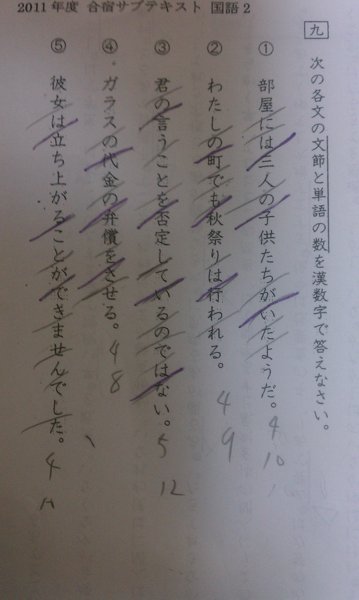 2011年度 合宿サブテキスト 国語2
九 次の各文の文節と単語の数を漢数字で答えなさい。
① 部屋には三人の子供たちがいたようだ。4 10
② わたしの町でも秋祭りは行われる。4 9
③ 君の言うことを否定しているのではない。5 12
④ ガラスの代金の弁償をさせる。4 8
⑤ 彼女は立ち上がることができませんでした。4